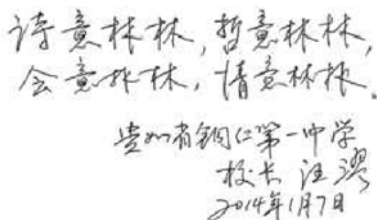 诗意林林,哲意林林,
会意林林,情意林林。
贵州省铜仁第一中学
校长 汪漻
2014年1月7日